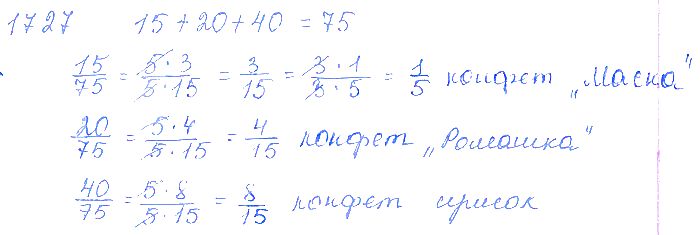 1727 15 + 20 + 40 = 75
15/75 = 5·3/5·15 = 3/15 = 3·1/3·5 = 1/5 конфет „Маска"
20/75 = 5·4/5·15 = 4/15 конфет „Ромашка"
40/75 = 5·8/5·15 = 8/15 конфет ирисок